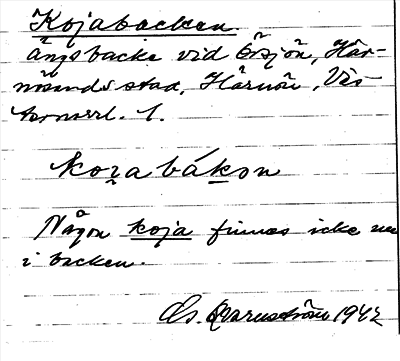 Kojabacken
ängsbacke vid Örsjön, Här-
nösands stad, Härnön, Väs
ternorrl. l.
kojabákən
Någon koja finnes icke nu
i backen.
1942